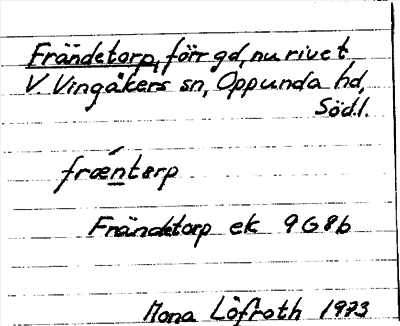 Frändetorp, förr gd, nu rivet
V. Vingåkers sn, Oppunda hd,
Södl.
frǽnterp
Frändetorp ek 9G8b
Mona Löfroth 1973